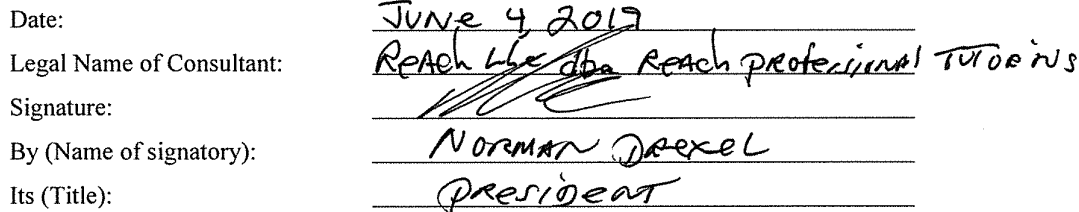 Date: June 4, 2019
Legal Name of Consultant: Reach LLC dba Reach Professional Tutoring
Signature:
By (Name of signatory): Norman Drexel
Its (Title): President